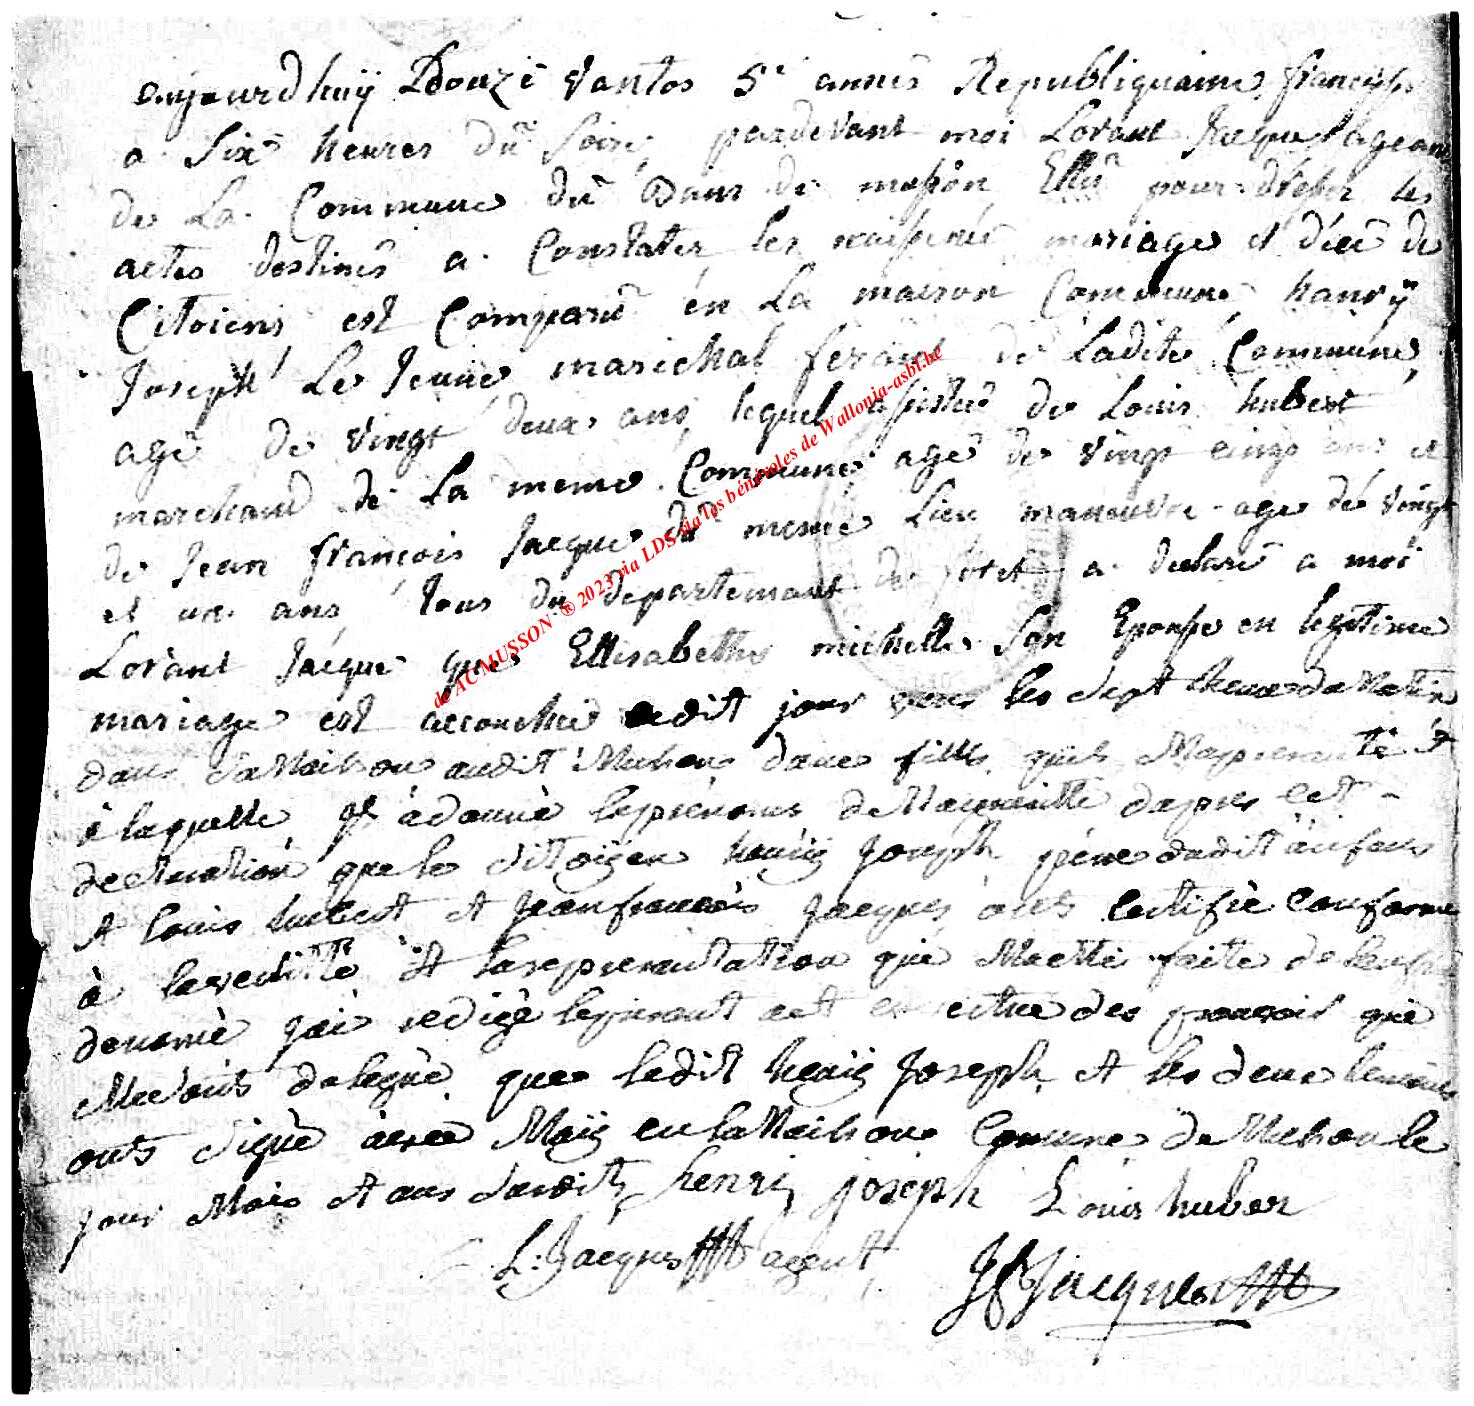 aujourdhuÿ Douze Vantos 5e annes Republiquaine françoise
a Six heures du Soire pardevant moi Lorant Jacque lagean
de La Commune du Bans de musson Ellu pour dresser les
actes destines a Constater les naissences mariages et décé de
Citoiens est Comparu en La maison Commune hanrÿ
Joseph Le Jeune marichal ferant de Ladite Commune
agé de vingt deux ans lequel assistée de Louis hubert
marchand de La meme Commune age de vingt cinq ans et
de Jean françois Jacque du meme Lieu maneuvre age de vingt
et un ans tous du departemant de foret a declaré a moi
Lorant Jacque que Ellisabethe michelle Son Epouse en legitime
mariage est accouchée ledit jour vers les Sept heures du Matin
dans Sa Maison audit Musson dune fille quil Ma presenté et
à laquelle Il à donné le prénoms de Margueritte dapres cet
declaration que le Citoÿen henrÿ Joseph pére dudit énfans
et louis hubert et Jean françois Jacques onts certifié conforme
à la verité et la representation que Ma été faite de lenfant
denomé jai redigé le present act en vertue des pouvoir que
Me Sonts delegué que ledit henrÿ Joseph et les deux temoins
onts Signé avec Moÿ en la Maison Comune de Musson le
jour Mois et ans Susdit henri joseph Louis huber
L: Jacques agent JfJacques
de ACMUSSON ® 2023 via LDS via les bénévoles de Wallonia-asbl.be